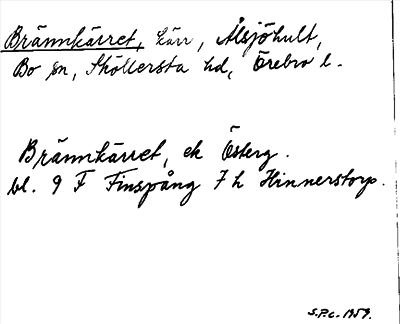 Brännkärret, kärr, Ålsjöhult,
Bo sn, Sköllersta hd, Örebro l.
Brännkärret, ek Österg.
bl. 9 F Finspång 7 h Hinnerstorp.
S.P.c. 1959.